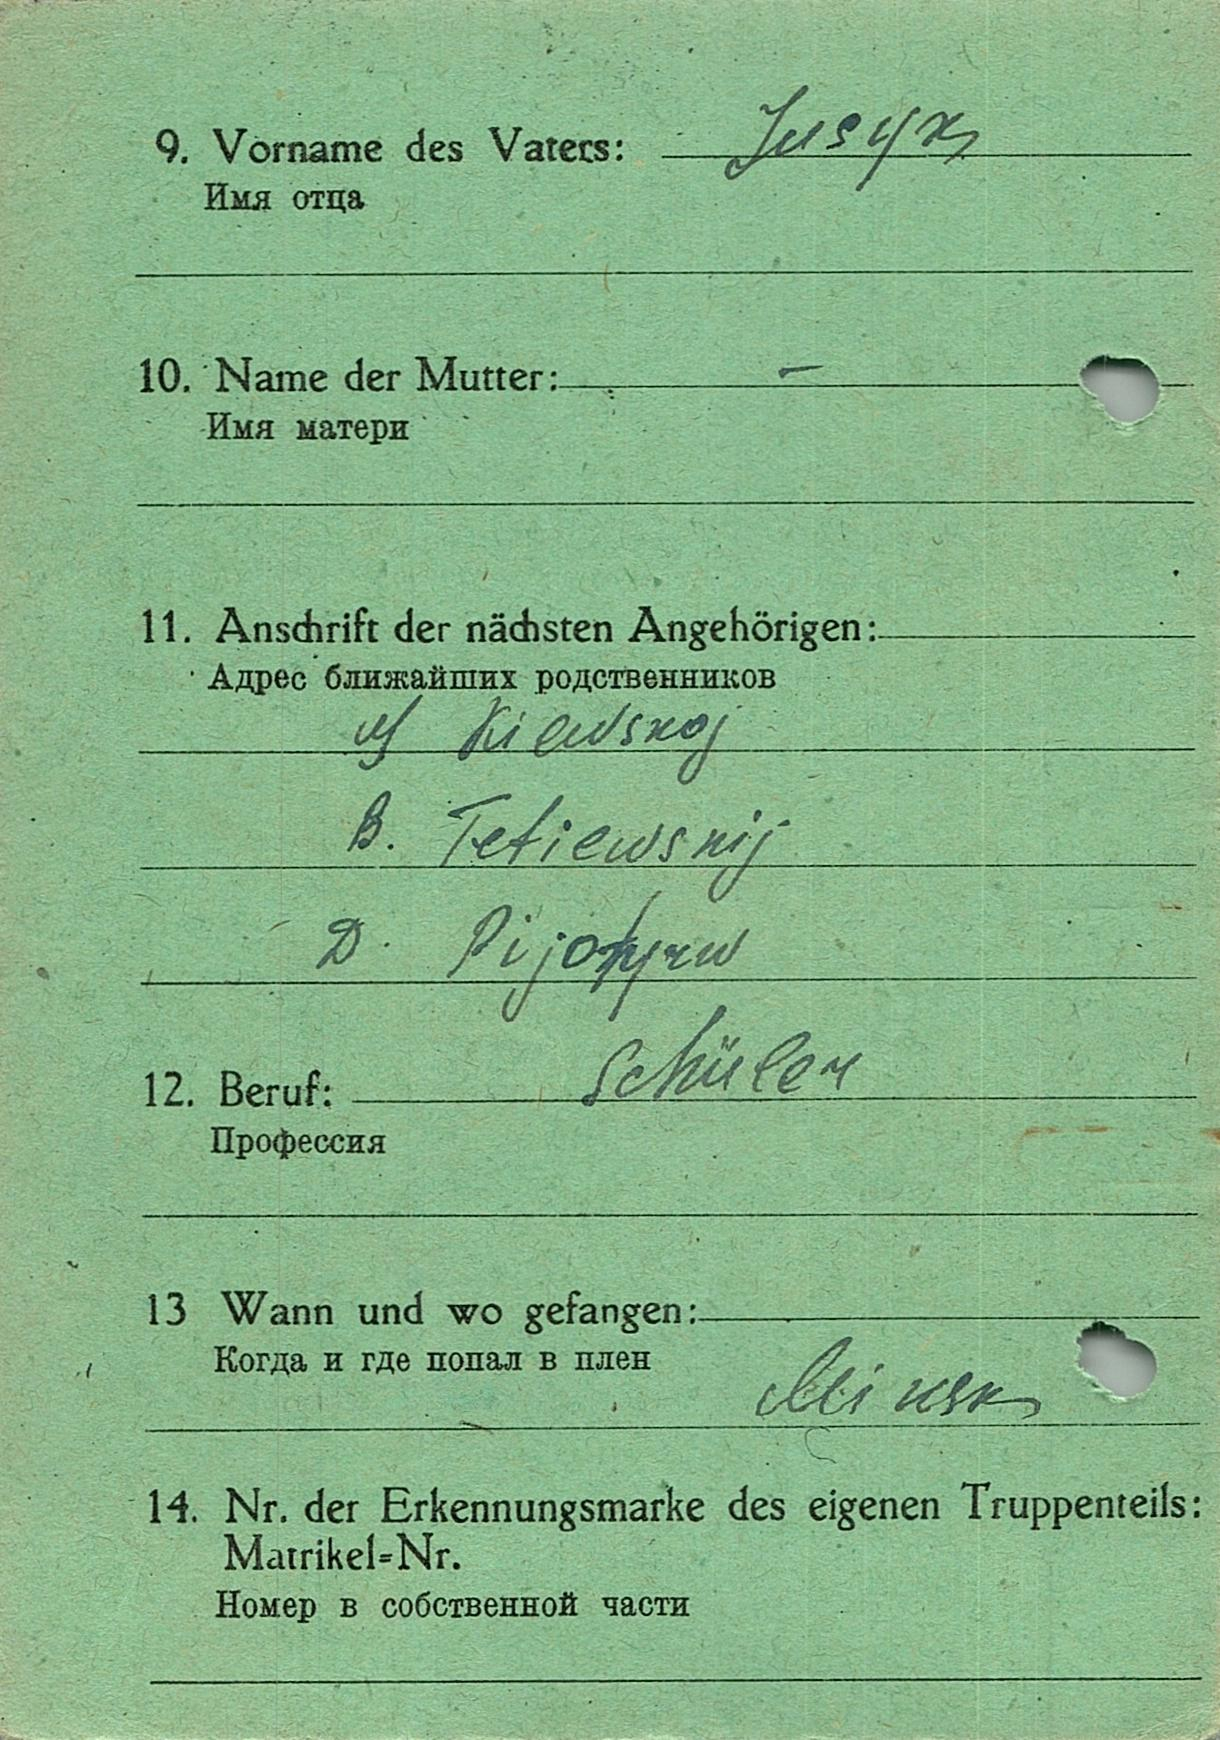 9. Vorname des Vaters: Jusyk
Имя отца
10. Name der Mutter: –
Имя матери
11. Anschrift der nächsten Angehörigen:
Адрес ближайших родственников
Kiewskoj
B. Tetiewskij
D.
12. Beruf: Schüler
Профессия
13 Wann und wo gefangen:
Когда и где попал в плен
Minsk
14. Nr. der Erkennungsmarke des eigenen Truppenteils:
Matrikel=Nr.
Номер в собственной части